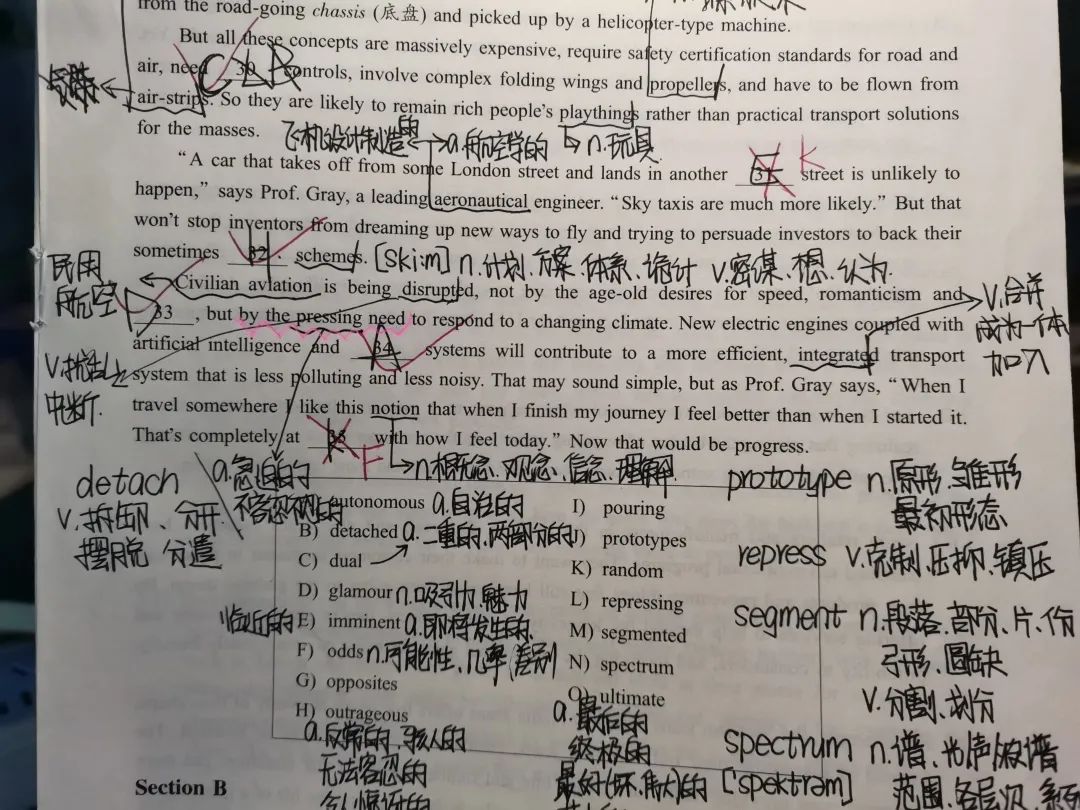 from the road-going chassis (底盘) and picked up by a helicopter-type machine.
But all these concepts are massively expensive, require safety certification standards for road and
air, need 30 controls, involve complex folding wings and propellers, and have to be flown from
air-strips. So they are likely to remain rich people's playthings rather than practical transport solutions
for the masses. 飞机设计制造的 a.航空学的 n.玩具
"A car that takes off from some London street and lands in another 31 K street is unlikely to
happen," says Prof. Gray, a leading aeronautical engineer. "Sky taxis are much more likely." But that
won't stop inventors from dreaming up new ways to fly and trying to persuade investors to back their
sometimes 32 schemes. [ski:m] n.计划.方案.体系.诡计 v.密谋.想.认为.
民用
航空
Civilian aviation is being disrupted, not by the age-old desires for speed, romanticism and
D 33, but by the pressing need to respond to a changing climate. New electric engines coupled with
artificial intelligence and 34 systems will contribute to a more efficient, integrated transport
system that is less polluting and less noisy. That may sound simple, but as Prof. Gray says, "When I
travel somewhere I like this notion that when I finish my journey I feel better than when I started it.
That's completely at 35 F with how I feel today." Now that would be progress.
v.合并
成为一体
加入
v.扰乱
中断.
a.急迫的
不容忽视的
n.概念.观念.信念.理解
detach
v.拆卸、分开
摆脱 分遣
A) autonomous a.自治的
B) detached
C) dual a.二重的.两部分的
D) glamour n.吸引力.魅力
临近的 E) imminent a.即将发生的.
F) odds n.可能性、几率.差别
G) opposites
H) outrageous
a.反常的、骇人的
无法容忍的
令人惊讶的
I) pouring
J) prototypes
K) random
L) repressing
M) segmented
N) spectrum
O) ultimate
a.最后的
终极的
prototype n.原形.雏形
最初形态
repress v.克制.压抑.镇压
segment n.段落.部分.片.份
弓形.圆缺
v.分割.划分
spectrum n.谱、光/声/波谱
[spektrəm] 范围.各层次.系列
Section B